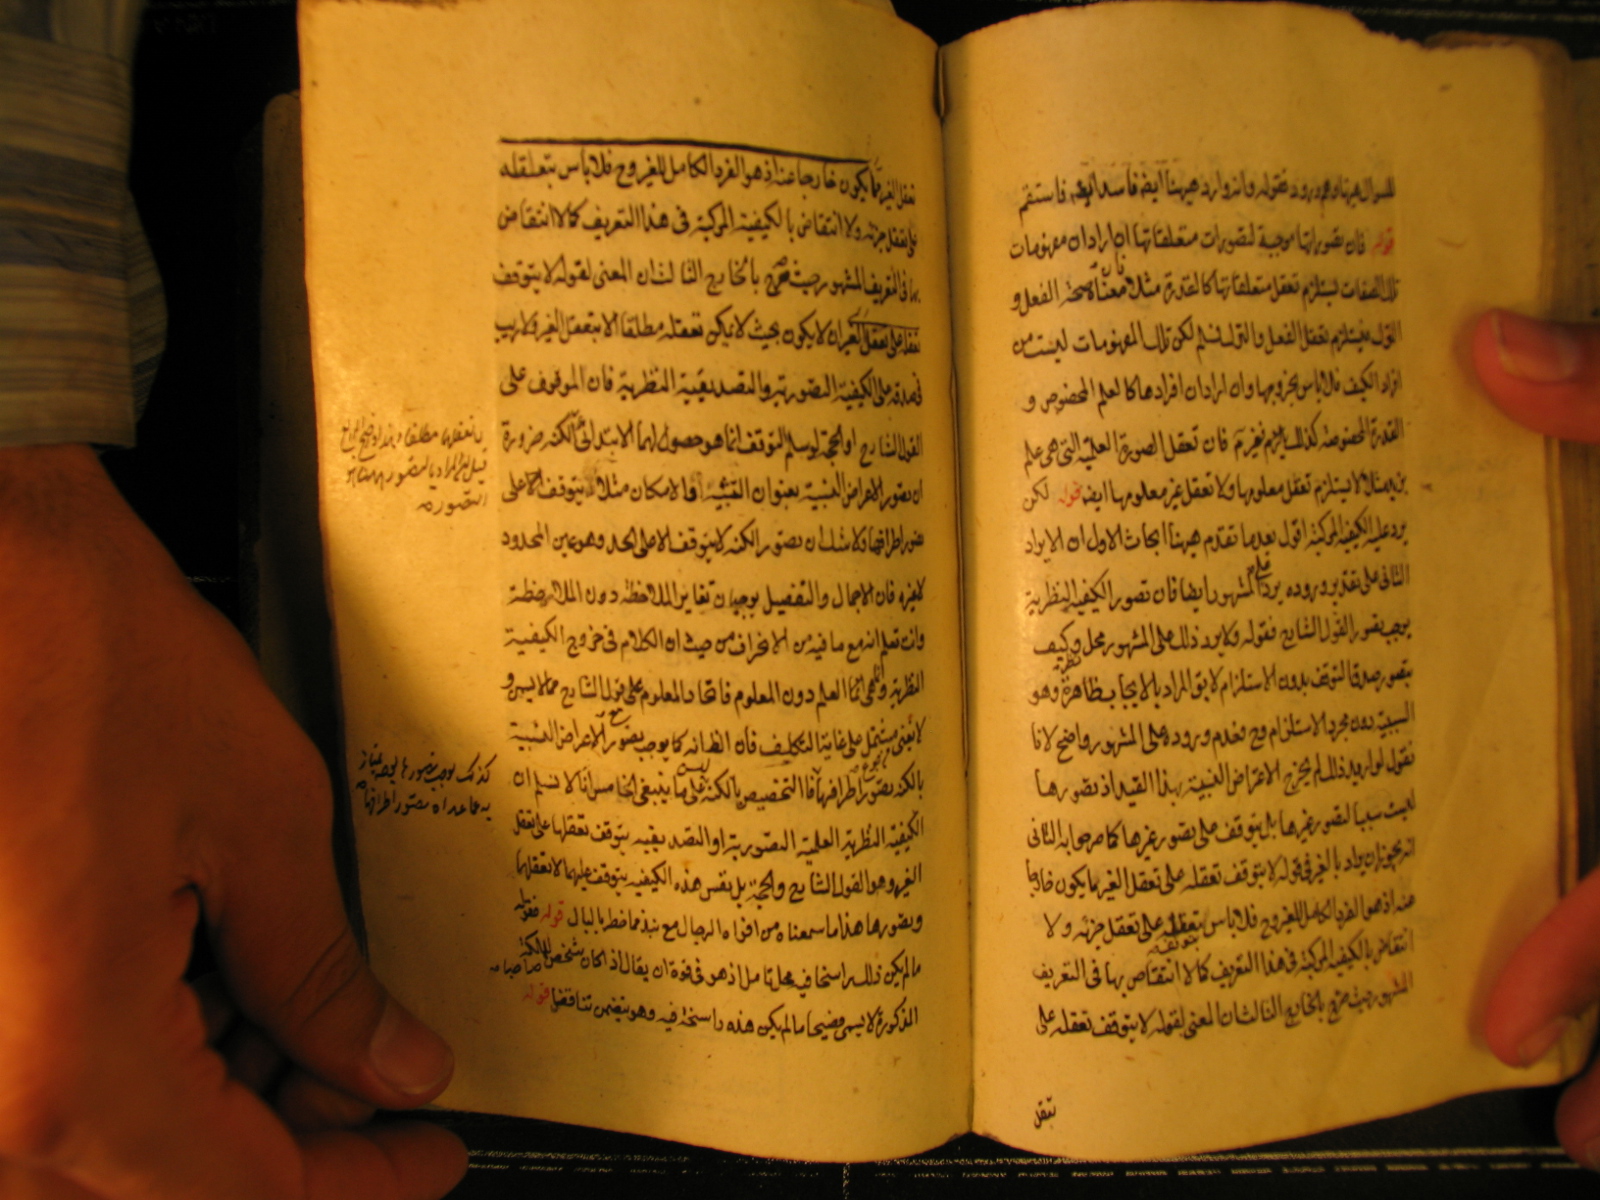 للسوال ههنا وهم ورود فقوله وانه وارد ههنا ايضا فاسد ايضا فاستقم
قوله فان تصوراتها موجبة لتصورات متعلقاتها ان اراد ان مفهومات
تلك الصفات يستلزم تعقل متعلقاتها كالقدرة مثلا معناه صحة الفعل و
الترك فيستلزم تعقل الفعل والترك فسلم لكن تلك المفهومات ليست من
افراد الكيف فلا باس بخروجها وان اراد ان افرادها كالعلم المخصوص و
القدرة المخصوصة كذلك يلزم فغير مسلم فان تعقل الصورة العلمية التي هي علم
زيد مثلا لا يستلزم تعقل معلومها ولا تعقل غير معلومها ايضا قوله لكن
يرد عليه الكيفية المركبة اقول بعد ما تقدم ههنا ابحاث الاول ان الايراد
الثاني على تقدير وروده يرد على المشهور ايضا فان تصور الكيفية النظرية
يوجب تصور القول الشارح فقوله ولا يرد ذلك على المشهور محل نظر وكيف
يتصور صدق التوقف بدون الاستلزام لا يق المراد بالايجاب ظاهره وهو
السببية دون مجرد الاستلزام وح فعدم وروده على المشهور واضح لانا
نقول لو اريد ذلك لم يخرج الاعراض النسبية بهذا القيد اذ تصورها
ليست سببا لتصور غيرها بل يتوقف على تصور غيرها كما صرحوا به الثاني
انه يجوز ان يراد بالغير في قوله لا يتوقف تعقله على تعقل الغير ما يكون خارجا
عنه اذ هو الفرد الكامل للغير وح فلا باس بتوقف تعقله على تعقل جزئه ولا
انتقاض بالكيفية المركبة في هذا التعريف كما لا انتقاض بها في التعريف
المشهور حيث صرح بالخارج الثالث ان المعنى لقوله لا يتوقف تعقله على
تعقل
تعقل الغير ما يكون خارجا عنه اذ هو الفرد الكامل للغير وح فلا باس بتعلقله
على تعقل جزئه ولا انتقاض بالكيفية المركبة في هذا التعريف كما لا انتقاض
بها في التعريف المشهور حيث صرح بالخارج الثالث ان المعنى لقوله لا يتوقف
تعقله على تعقل الغير ان لا يكون بحيث لا يمكن تعقله مطلقا الا بتعقل الغير ولا ريب
في صدقه على الكيفية التصورية والتصديقية النظرية فان الموقوف على
القول الشارح او الحجة لو سلم التوقف انما هو حصولهما الابتدائي الكنه ضرورة
ان تصور الاعراض النسبية بعنوان الشيئية او الامكان مثلا لا يتوقف على
تصور اطرافها ولا شك ان تصور الكنه لا يتوقف الا على الحد وهو عين المحدود
لا غيره فان الاجمال والتفصيل يوجبان تغاير الملاحظة دون الملاحظة
وانت تعلم انه مع ما فيه من الانحراف من حيث ان الكلام في خروج الكيفية
النظرية والتي هي انما العلم دون المعلوم فاتحاد المعلوم على قول الشارح مما لا يسمن و
لا يغني مشتمل على غاية التكليف فان الظ انه كما يوجب تصور الاعراض النسبية
بالكنه تصور اطرافها فالتخصيص بالكنه ليس على ما ينبغي الخامس انا لا نسلم ان
الكيفية النظرية العلمية التصورية او التصديقية يتوقف تعقلها على تعقل
الغير وهو القول الشارح والحجة بل نفس هذه الكيفية يتوقف عليهما لا تعقلها
وتصورها هذا ما سمعناه من افواه الرجال مع نبذ مما خطر بالبال قوله فقوله
مالم يكن ذلك راسخا فيه محل تامل اذ هو في قوة ان يقال اذ كان شخص
المذكورة لا يسمى فضيحا مالم يكن هذه راسخة فيه وهو يتضمن تناقضا قوله
كذلك يوجب تصورها بوجه يمتاز
به عما عداه تصور اطرافها